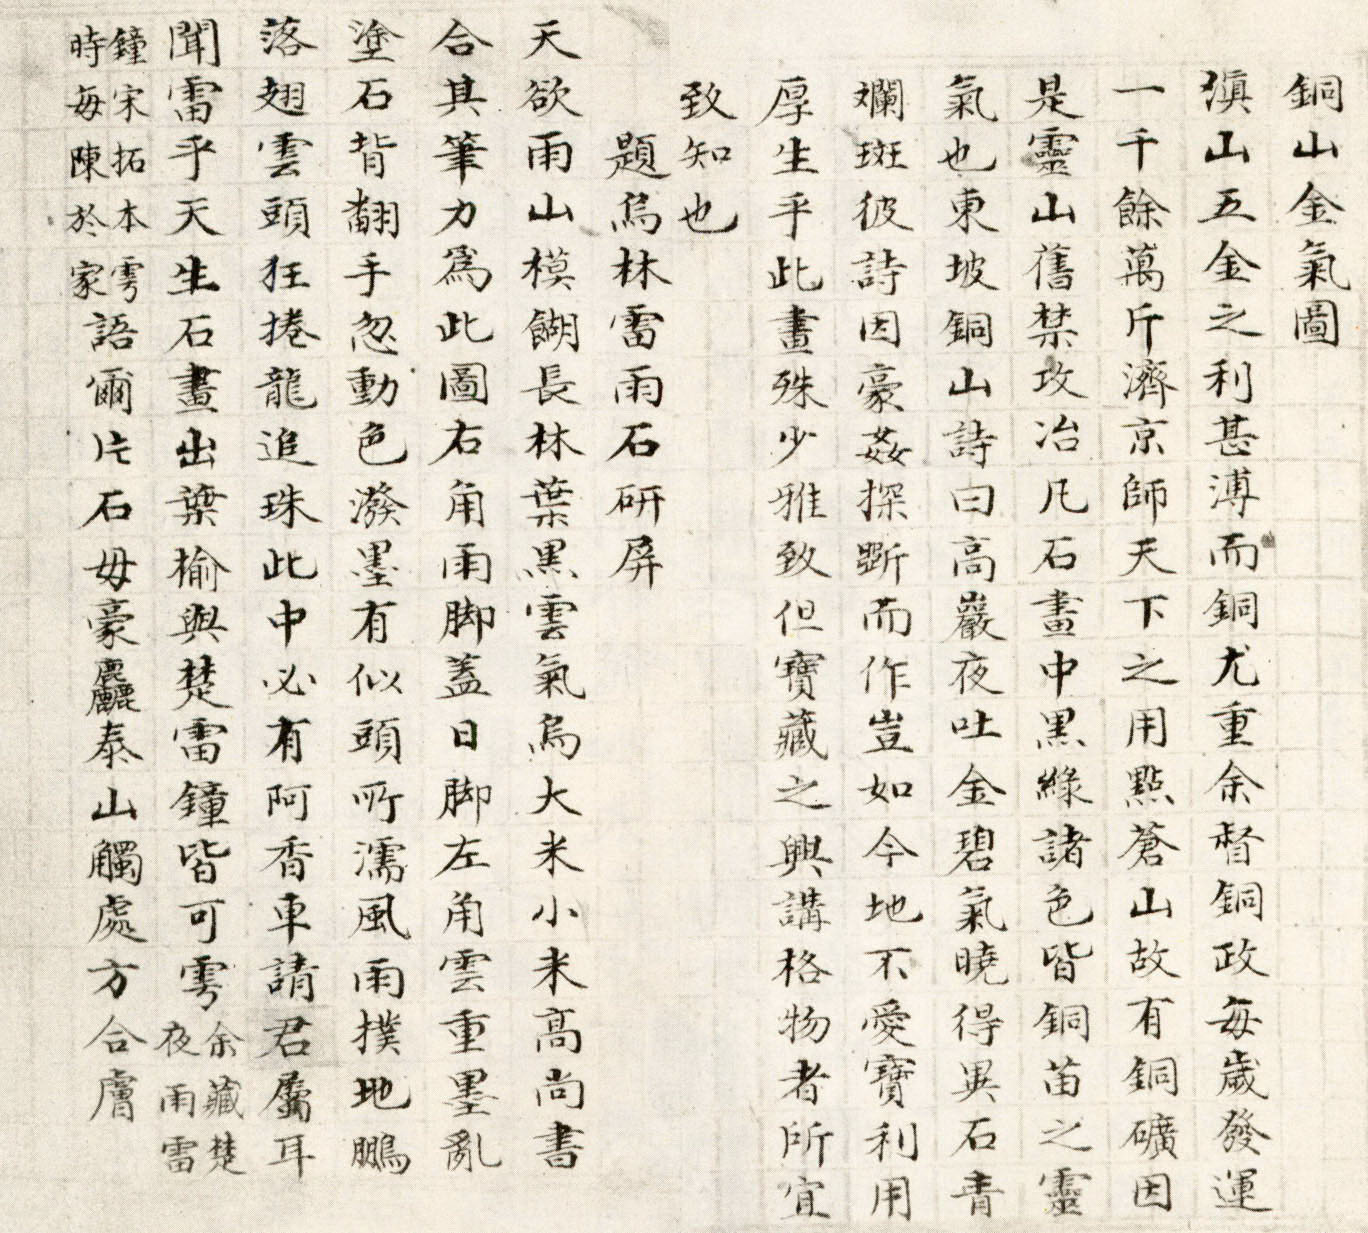 銅山金氣圖
滇山五金之利甚溥而銅尤重余督銅政每歲發運
一千餘萬斤濟京師天下之用點蒼山故有銅礦因
是靈山舊禁攻冶凡石畫中黑綠諸色皆銅苗之靈
氣也東坡銅山詩曰高巖夜吐金碧氣曉得異石青
斕斑彼詩因豪姦探斲而作豈如今地不愛寶利用
厚生乎此畫殊少雅致但寶藏之興講格物者所宜
致知也
題烏林雷雨石研屏
天欲雨山模餬長林葉黑雲氣烏大米小米高尚書
合其筆力爲此圖右角雨脚蓋日脚左角雲重墨亂
塗石背翻手忽動色潑墨有似頭所濡風雨撲地鵬
落翅雲頭狂捲龍追珠此中必有阿香車請君屬耳
聞雷乎天生石畫出葉榆與楚雷鐘皆可雩余藏楚夜雨雷
鐘宋拓本雩時每陳於家語爾片石毋豪麤泰山觸處方合膚